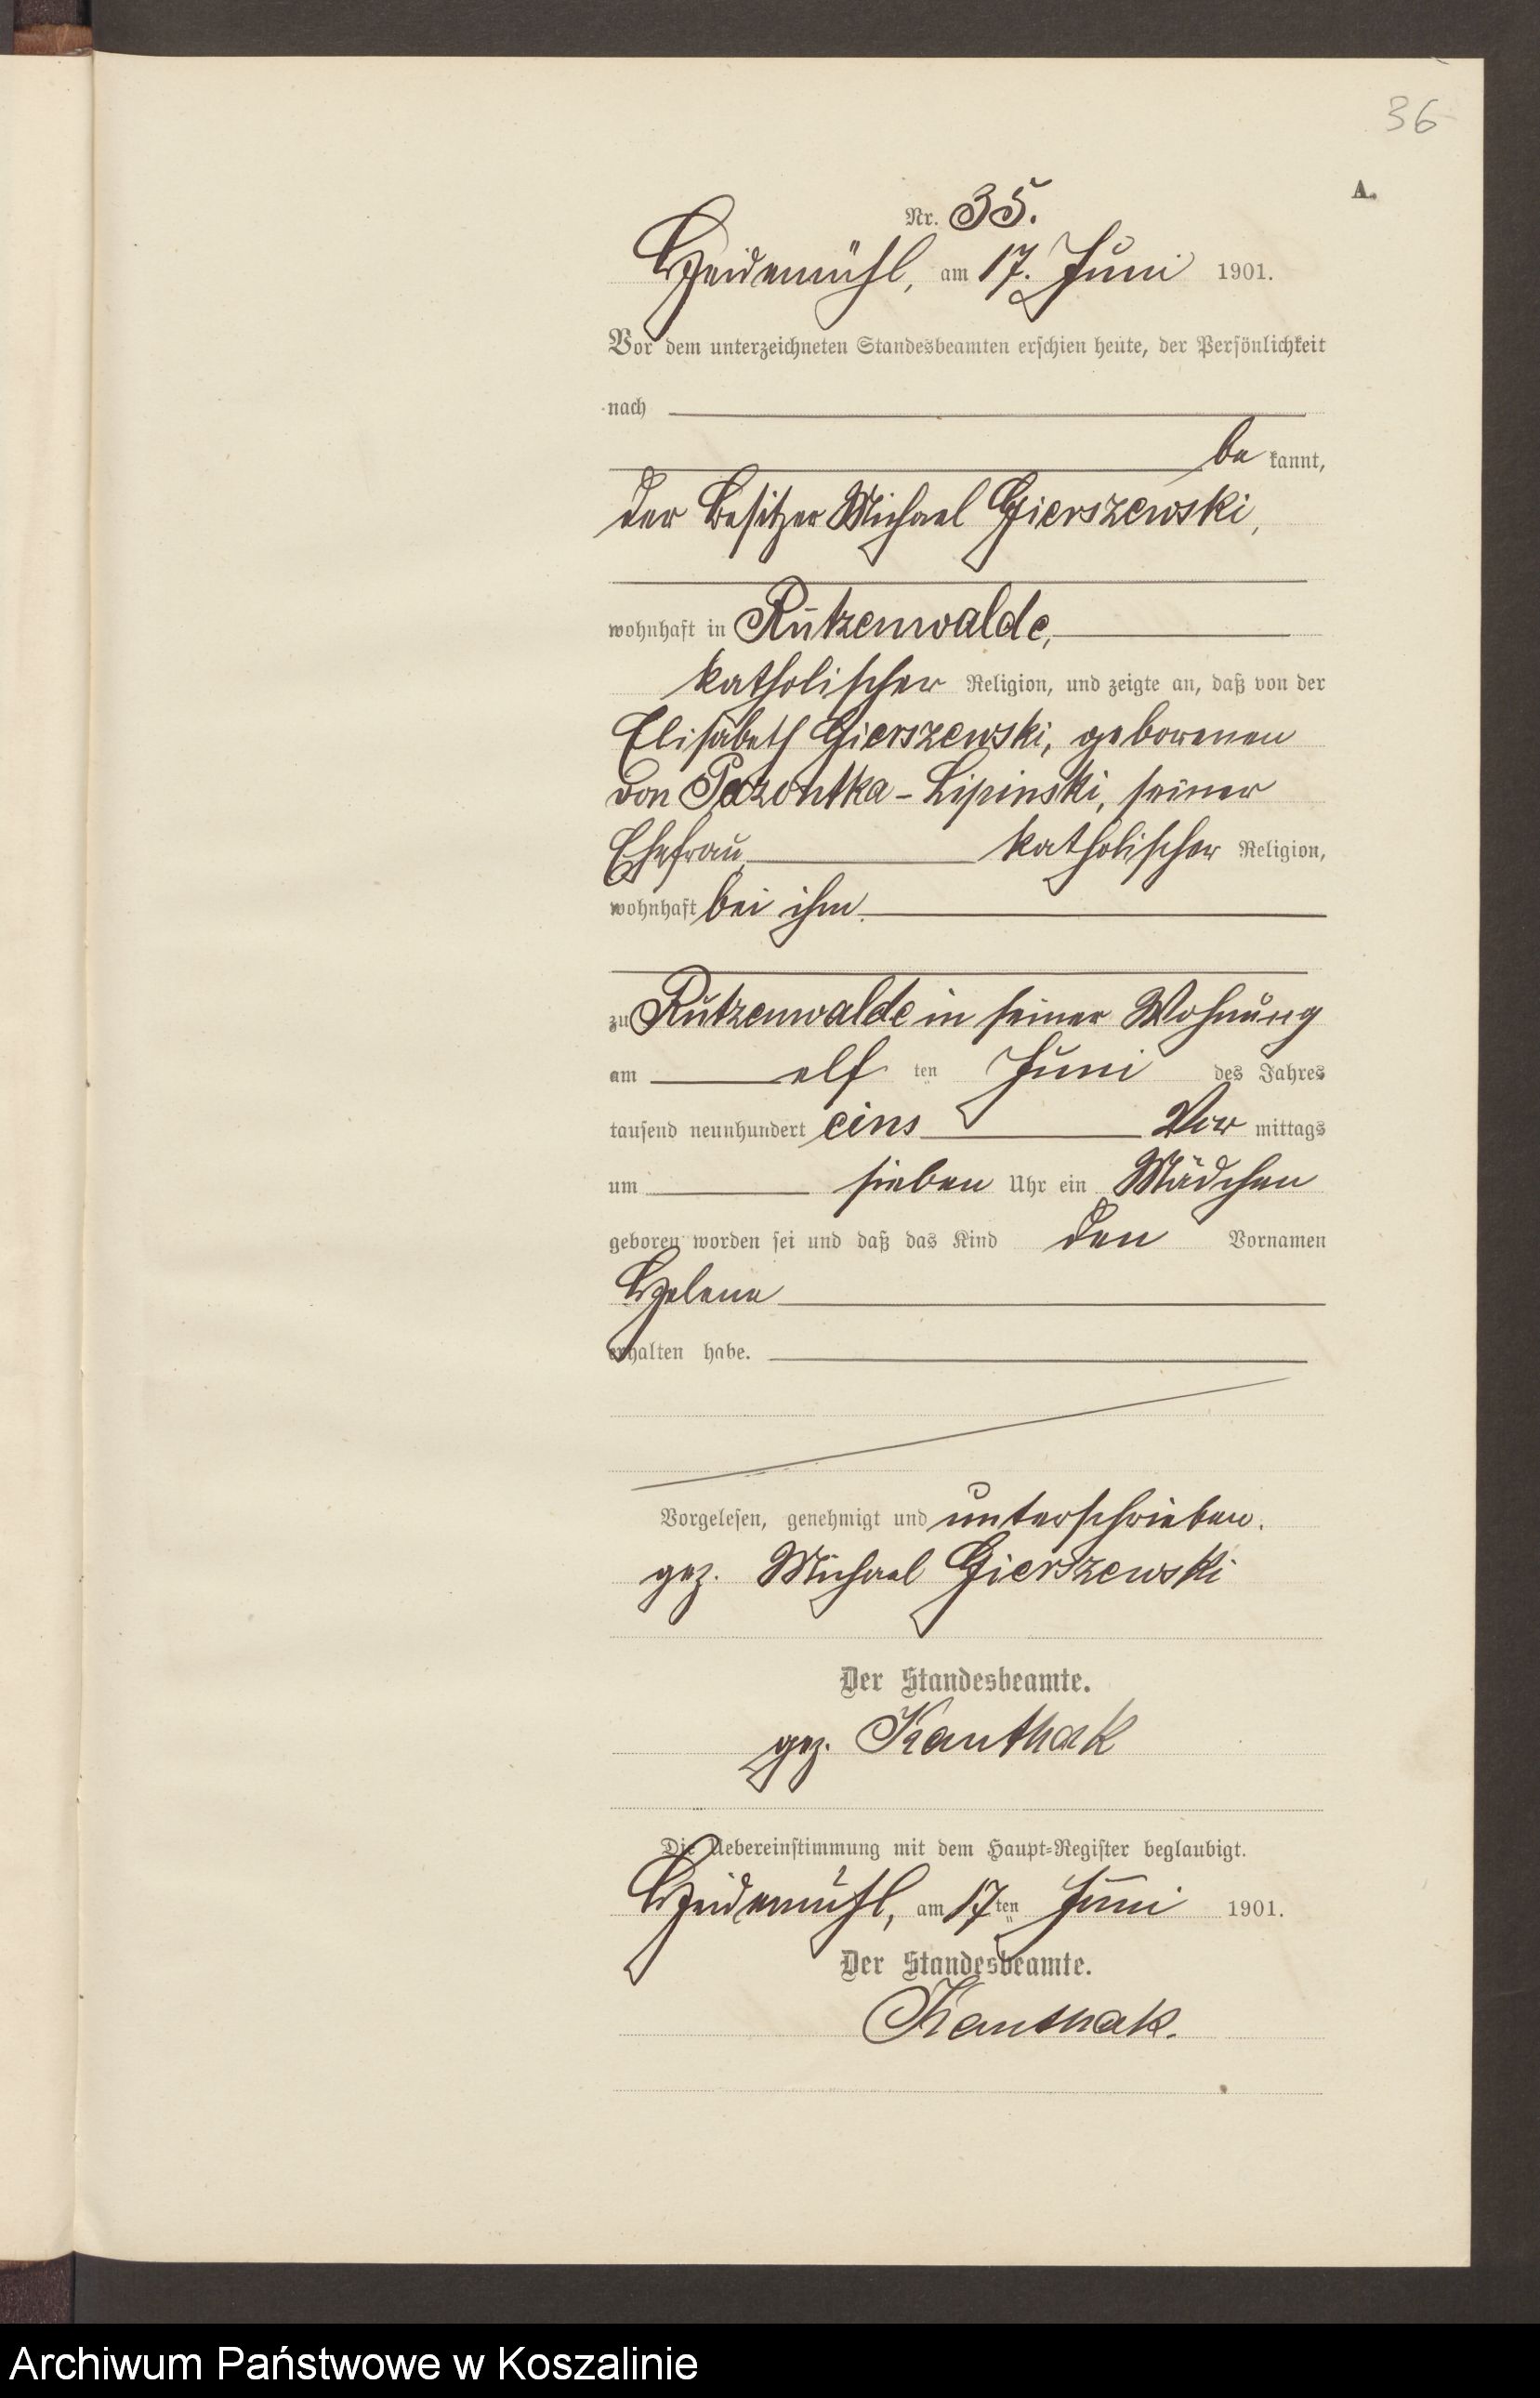 36
A.
Nr. 35.
Heidemühl, am 17. Juni 1901.
Vor dem unterzeichneten Standesbeamten erschien heute, der Persönlichkeit
nach
bekannt,
der Besitzer Michael Gierszewski,
wohnhaft in Rutzenwalde,
katholischer Religion, und zeigte an, daß von der
Elisabeth Gierszewski, geborenen
von Pazontka-Lipinski, seiner
Ehefrau, katholischer Religion,
wohnhaft bei ihm.
zu Rutzenwalde in seiner Wohnung
am elf ten Juni des Jahres
tausend neunhundert eins Vormittags
um sieben Uhr ein Mädchen
geboren worden sei und daß das Kind den Vornamen
Helene
erhalten habe.
Vorgelesen, genehmigt und unterschrieben.
gez. Michael Gierszewski
Der Standesbeamte.
gez. Kanthak
Die Uebereinstimmung mit dem Haupt-Register beglaubigt.
Heidemühl, am 17ten Juni 1901.
Der Standesbeamte.
Kanthak.
Archiwum Państwowe w Koszalinie